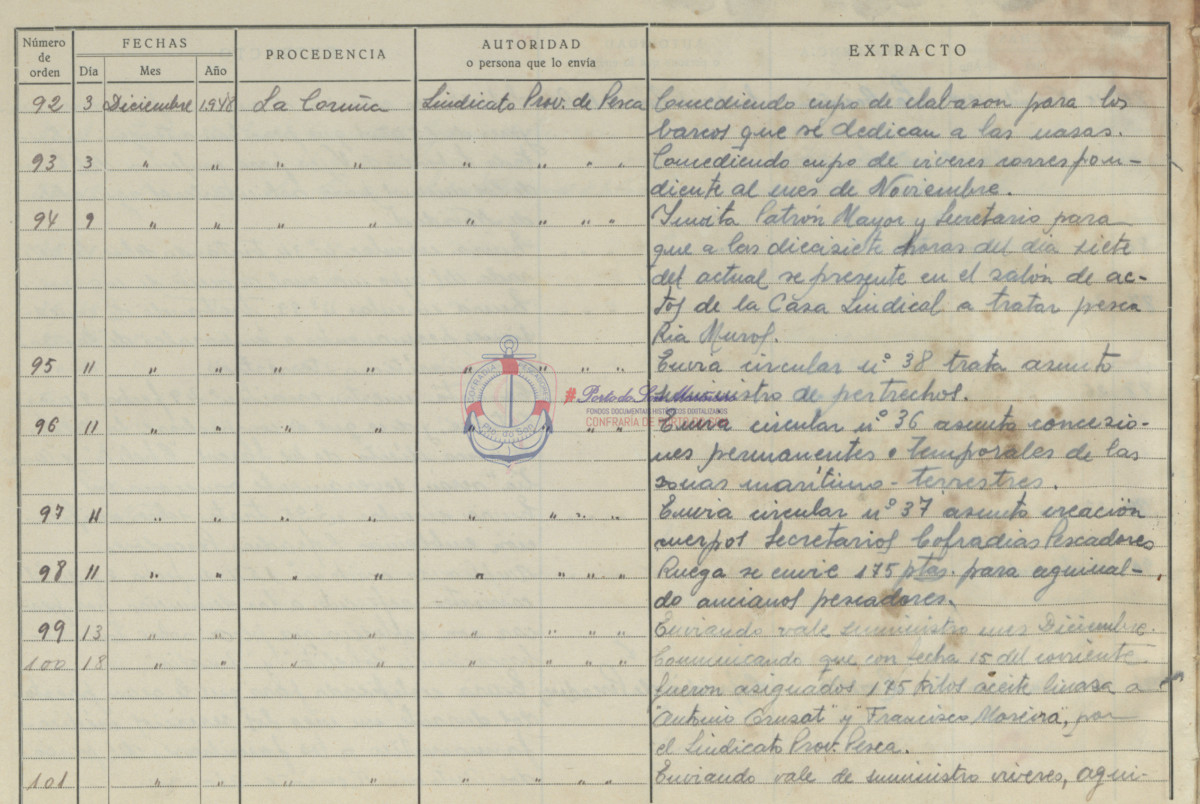 Número de orden FECHAS PROCEDENCIA AUTORIDAD EXTRACTO
Dia Mes Año o persona que lo envía
92 3 Diciembre 1.948 La Coruña Sindicato Prov. de Pesca Concediendo cupo de elabason para los
barcos que se dedican a las nasas.
93 3 " " " " " " " " Concediendo cupo de viveres correspon-
diente al mes de Noviembre.
94 9 " " " " " " " " Invita Patrón Mayor y Secretario para
que a las diecisiete horas del dia siete
del actual se presente en el salón de ac-
tos de la Casa Sindical a tratar pesca
Ria Muros.
95 11 " " " " " " " " Envia circular nº 38 trata asunto
suministro de pertrechos.
96 11 " " " " " " " " Envia circular nº 36 asunto concesio-
nes permanentes o temporales de las
zonas marítimo-terrestres.
97 11 " " " " " " " Envia circular nº 37 asunto creación
cuerpos Secretarios Cofradias Pescadores
98 11 " " " " " " " " Ruega se envie 175 ptas. para aguinal-
do ancianos pescadores.
99 13 " " " " " " " " Enviando vale suministro mes Diciembre.
100 18 " " " " " " " " Comunicando que con fecha 15 del corriente
fueron asignados 175 kilos aceite linaza a
"Antonio Crusat" y "Francisco Moreira", por
el Sindicato Prov. Pesca.
101 " " " " " " " " Enviando vale de suministro viveres, agui-
COFRADIA PESCADORES
Pto. do Son
# Porto do Son
FONDOS DOCUMENTAIS HISTÓRICOS DIXITALIZADOS
CONFRARIA DE PORTO DO SON